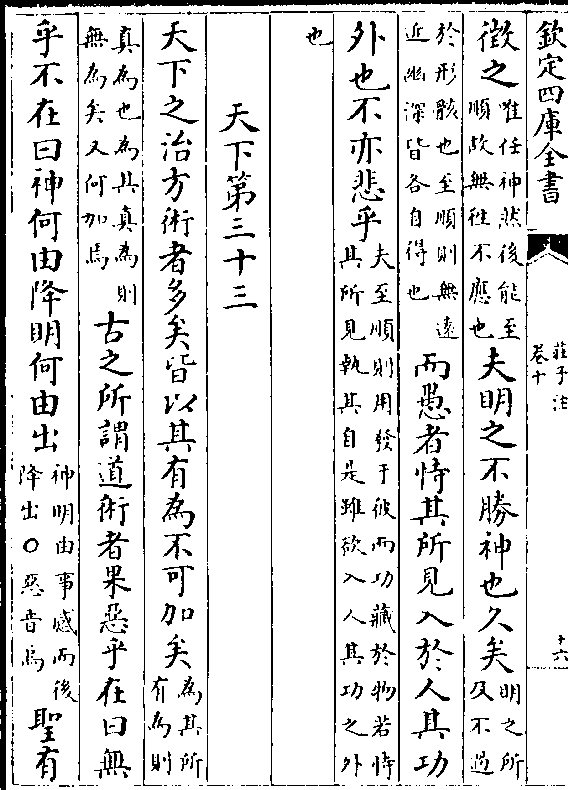 欽定四庫全書
莊子注
卷十
十六
徵之唯任神然後能至順故無往不應也夫明之不勝神也久矣明之所及不過
於形骸也至順則無遠近幽深皆各自得也而愚者恃其所見入於人其功
外也不亦悲乎夫至順則用發于彼而功藏於物若恃其所見執其自是雖欲入人其功之外
也
天下第三十三
天下之治方術者多矣皆以其有為不可加矣為其所有為則
真為也為其真為則無為矣又何加焉古之所謂道術者果惡乎在曰無
乎不在曰神何由降明何由出神明由事感而後降出○惡音烏聖有